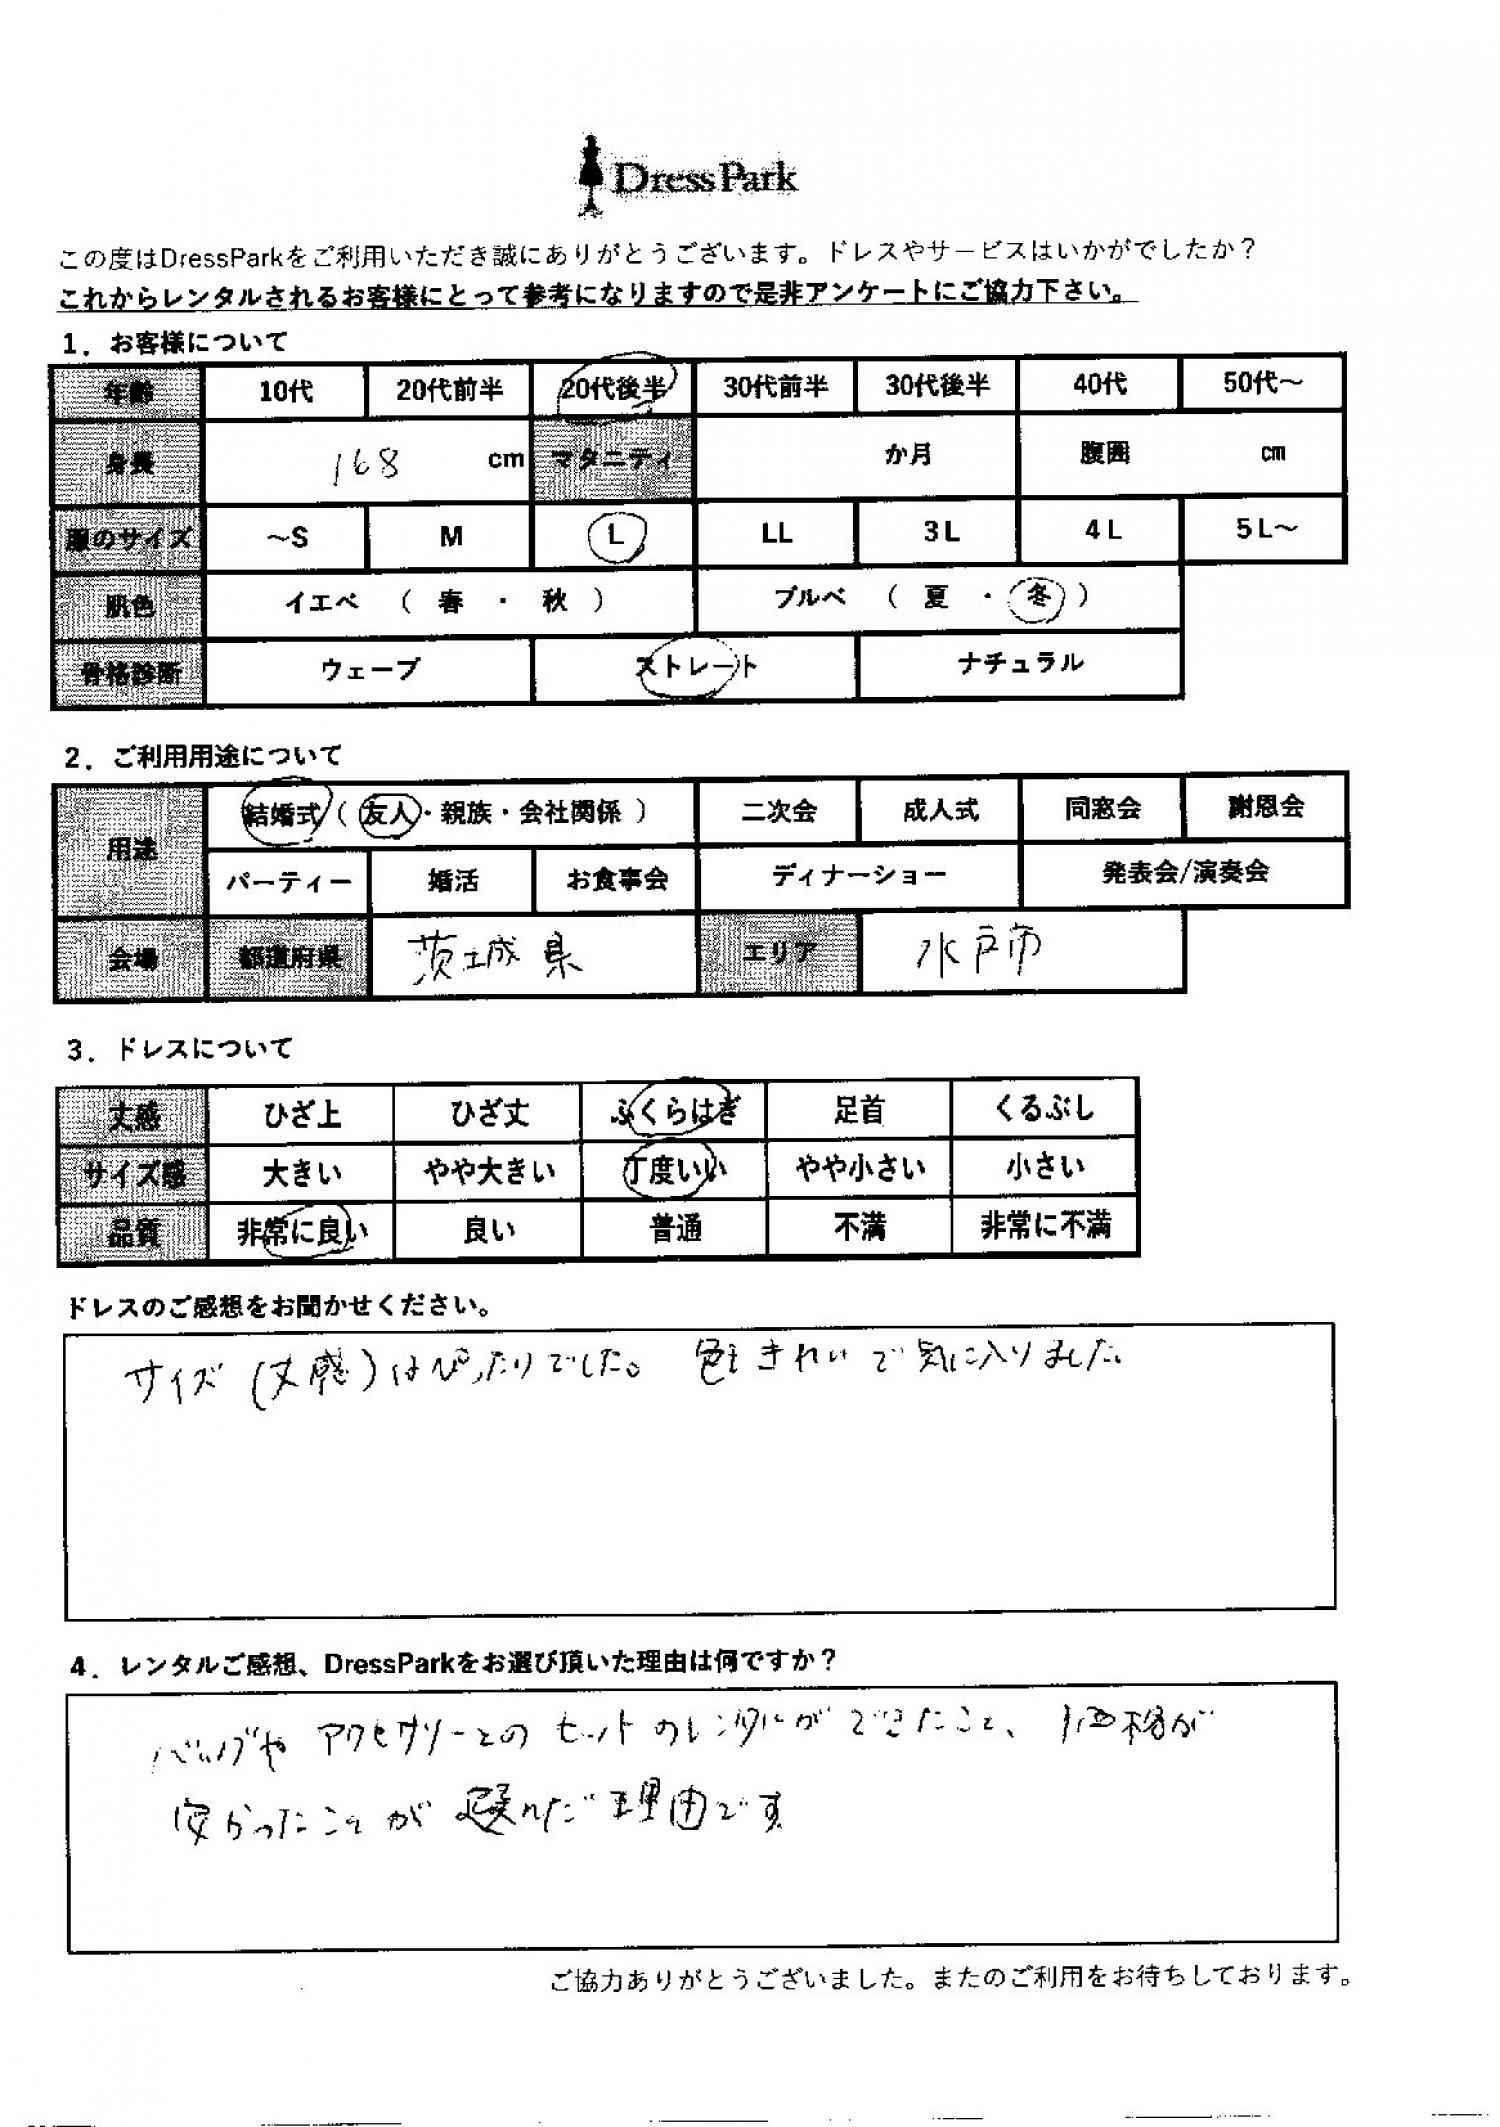 DressPark
この度はDressParkをご利用いただき誠にありがとうございます。ドレスやサービスはいかがでしたか？
これからレンタルされるお客様にとって参考になりますので是非アンケートにご協力下さい。
1．お客様について
年齢 10代 20代前半 20代後半 30代前半 30代後半 40代 50代～
身長 168 cm マタニティ か月 腹囲 cm
服のサイズ ～S M L LL 3L 4L 5L～
肌色 イエベ （ 春 ・ 秋 ） ブルベ （ 夏 ・ 冬 ）
骨格診断 ウェーブ ストレート ナチュラル
2．ご利用用途について
用途 結婚式（ 友人・親族・会社関係 ） 二次会 成人式 同窓会 謝恩会
パーティー 婚活 お食事会 ディナーショー 発表会/演奏会
会場 都道府県 茨城県 エリア 水戸市
3．ドレスについて
丈感 ひざ上 ひざ丈 ふくらはぎ 足首 くるぶし
サイズ感 大きい やや大きい 丁度いい やや小さい 小さい
品質 非常に良い 良い 普通 不満 非常に不満
ドレスのご感想をお聞かせください。
サイズ(丈感)はぴったりでした。 色もきれいで気に入りました
4．レンタルご感想、DressParkをお選び頂いた理由は何ですか？
バッグや アクセサリーとの セットのレンタルができたこと、価格が
安かったことが 選んだ 理由です
ご協力ありがとうございました。またのご利用をお待ちしております。